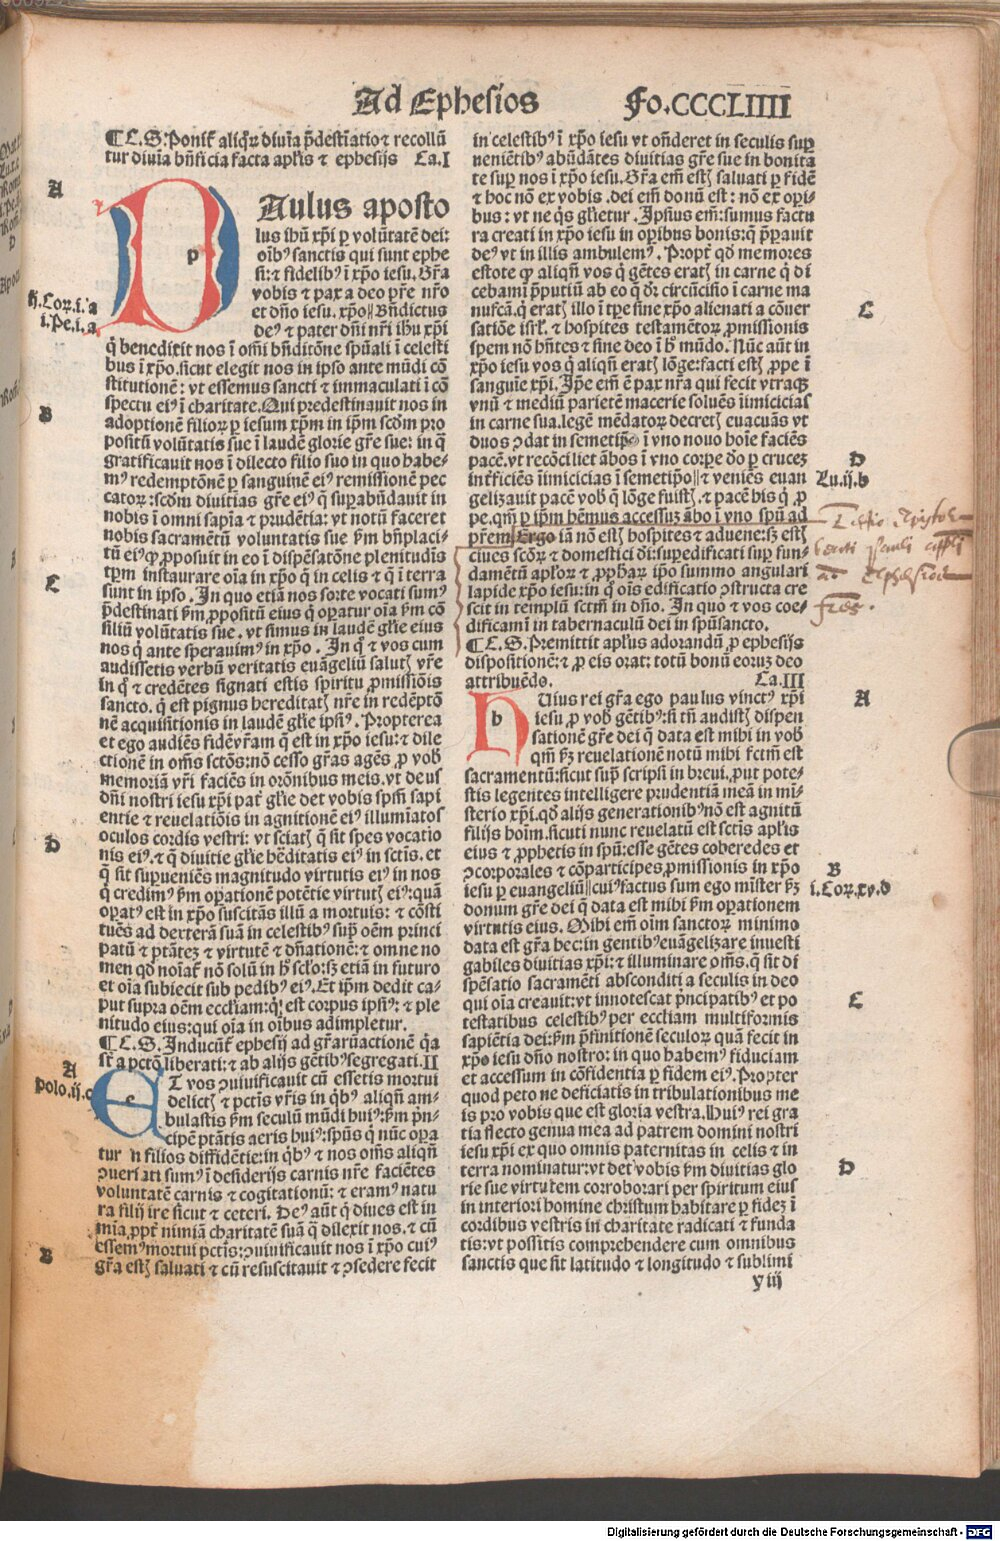 Ad Ephesios Fo.CCCLIIII
¶C.S. Ponit̃ aliqr̃ diuīa p̄destīatiōe ⁊ recollū
tur diuīa bñficia facta apl̄is ⁊ ephesijs Ca.I
A
PAulus aposto
p
lus ihū xp̄i ꝑ volūtatē dei:
oīb⁹ sanctis qui sunt ephe
si: ⁊ fidelib⁹ ī xp̄o iesu. Gr̄a
vobis ⁊ pax a deo pr̄e nr̄o
ij.Cor.i.a
et dño iesu. xp̄o|| Bñdictus
i.Pe.i.a
de⁹ ⁊ pater dñi nr̄i ihu xp̄i
q̇ benedixit nos ī om̄i bñditōne spūali ī celesti
bus ī xp̄o. sicut elegit nos in ipso ante mūdi cō
stitutionē: vt essemus sancti ⁊ immaculati ī cō
B
spectu ei⁹ ī charitate. Qui predestinauit nos in
adoptionē filioꝝ ꝑ iesum xp̄m in ip̄m scd̄m pro
positū volūtatis sue ī laudē glorie gr̄e sue: in q̄
gratificauit nos ī dilecto filio suo in quo habe-
m⁹ redemptōnē ꝑ sanguinē ei⁹ remissionē pec
catoꝝ: scd̄m diuitias gr̄e ei⁹ q̄ suꝑabūdauit in
nobis ī omni sapīa ⁊ prudētia: vt notū faceret
nobis sacramētū voluntatis sue ẜm bñplaci-
tū ei⁹ qđ ꝓposuit in eo ī dispēsatōne plenitudis
C
tꝑm instaurare oīa in xp̄o q̄ in celis ⁊ q̄ ī terra
sunt in ipso. In quo etiā nos sorte vocati sum⁹
p̄destinati ẜm ꝓpositū eius q̇ oꝑatur oīa ẜm cō
siliū volūtatis sue. vt simus in laudē gl̄ie eius
nos q̇ ante sperauim⁹ in xp̄o. In q̊ ⁊ vos cum
audissetis verbū veritatis euāgeliū salutꝭ vr̄e
in q̊ ⁊ credētes signati estis spiritu ꝓmissiōis
sancto. q̇ est pignus hereditatꝭ nr̄e in redēptō
nē acquisitionis in laudē gl̄ie ipsi⁹. Propterea
et ego audiēs fidē vr̄am q̄ est in xp̄o iesu: ⁊ dile
ctionē in om̄s sctōs: nō cesso gr̄as agēs ꝓ vob̄
memoriā vr̄i faciēs in orōnibus meis. vt deus
dñi nostri iesu xp̄i pat̃ gl̄ie det vobis spm̄ sapi
entie ⁊ reuelatiōis in agnitionē ei⁹ illumīatos
D
oculos cordis vestri: vt sciatꝭ q̄ sit spes vocatio
nis ei⁹. ⁊ q̄ diuitie gl̄ie hēditatis ei⁹ in sctīs. et
q̄ sit supueniēs magnitudo virtutis ei⁹ in nos
q̇ credim⁹ ẜm oꝑationē potētie virtutꝭ ei⁹: quā
oꝑat⁹ est in xp̄o suscitās illū a mortuis: ⁊ cōsti
tuēs ad dexterā suā in celestib⁹ suꝑ oēm princi
patū ⁊ ptātez ⁊ virtutē ⁊ dñationē: ⁊ omne no
men qđ noīat̃ nō solū in h̄ sclō: sꝫ etiā in futuro
et oīa subiecit sub pedib⁹ ei⁹. Et ip̄m dedit ca-
put supra oēm eccl̄iam: q̄ est corpus ipsi⁹: ⁊ ple
nitudo eius: qui oīa in oībus adimpletur.
¶C.S. Inducūt̃ ephesij ad gr̄aruactionē q̄a
sūt a pctō liberati: ⁊ ab alijs gētib⁹ segregati. II
A
ET vos ꝯuiuificauit cū essetis mortui
polo.ij.c
e
delictꝭ ⁊ pctīs vr̄is in qb⁹ aliqñ am-
bulastis ẜm seculū mūdi hui⁹: ẜm p̄n-
cipē ptātis aeris hui⁹: spūs q̇ nūc oꝑa
tur in filios diffidētie: in qb⁹ ⁊ nos om̄s aliqñ
ꝯuersati sum⁹ ī desiderijs carnis nr̄e faciētes
voluntatē carnis ⁊ cogitationū: ⁊ eram⁹ natu
ra filij ire sicut ⁊ ceteri. De⁹ aūt q̇ diues est in
mīa, ꝓpt̃ nimiā charitatē suā q̄ dilexit nos. ⁊ cū
B
essem⁹ mortui pctīs: ꝯuiuificauit nos ī xp̄o cui⁹
gr̄a estꝭ saluati ⁊ cū resuscitauit ⁊ ꝯsedere fecit
in celestib⁹ ī xp̄o iesu vt oñderet in seculis suꝑ
ueniētib⁹ abūdātes diuitias gr̄e sue in bonita
te suꝑ nos ī xp̄o iesu. Gr̄a em̄ estꝭ saluati ꝑ fidē
⁊ hoc nō ex vobis. dei em̄ donū est: nō ex oꝑi-
bus: vt ne q̇s gl̄ietur. Ipsius em̄: sumus factu
ra creati in xp̄o iesu in oꝑibus bonis: q̄ p̄parauit
de⁹ vt in illis ambulem⁹. Propt̃ qđ memores
estote qđ aliqñ vos q̇ gētes eratꝭ in carne q̇ di
cebamī p̄putiū ab eo q̄ dr̄ circūcisio ī carne ma
C
nufcā. q̇ eratꝭ illo ī tꝑe sine xp̄o alienati a cōuer
satiōe isrl̄. ⁊ hospites testamētoꝝ ꝓmissionis
spem nō hñtes ⁊ sine deo ī h̄ mūdo. Nūc aūt in
xp̄o iesu vos q̇ aliqñ eratꝭ lōge: facti estꝭ ꝓpe ī
sanguīe xp̄i. Ip̄e em̄ ē pax nr̄a qui fecit vtraqꝫ
vnū ⁊ mediū parietē macerie soluēs ī imicicias
in carne sua. legē mēdatoꝝ decretꝭ euacuās vt
duos ꝯdat in semetip̄o ī vno nouo hoīe faciēs
D
pacē. vt recōciliet ābos ī vno corꝑe dō ꝑ crucez
Lu.ij.b
int̃ficiēs īimicicias ī semetip̄o|| ⁊ veniēs euan
gelizauit pacē vob̄ q̇ lōge fuistꝭ. ⁊ pacē his q̇ ꝓ
pe. qm̄ ꝑ ip̄m hēmus accessuꝫ ābo ī vno spū ad
p̄rem|| Ergo iā nō estꝭ hospites ⁊ aduene: sꝫ estꝭ
ciues scōꝝ ⁊ domestici dī: supedificati suꝑ fun-
damētū apl̄oꝝ ⁊ ꝓpharꝝ ip̄o summo angulari
lapide xp̄o iesu: in q̊ oīs edificatio ꝯstructa cre
scit in templū sctm̄ in dño. In quo ⁊ vos coe-
dificamī in tabernaculū dei in spūsancto.
¶C.S. Premittit apl̄us adorandū ꝑ ephesijs
dispositionē: ⁊ ꝓ eis orat: totū bonū eoruꝫ deo
attribuēdo. Ca.III
A
HUius rei gr̄a ego paulus vinct⁹ xp̄i
h
iesu ꝓ vob̄ gētib⁹: si tñ audistꝭ dispen
sationē gr̄e dei q̄ data est mihi in vob̄
qm̄ ẜꝫ reuelationē notū mihi fctm̄ est
sacramentū: sicut sup̄ scripsi in breui. put pote-
stis legentes intelligere prudentiā meā in mi-
sterio xp̄i. qđ alijs generationib⁹ nō est agnitū
filijs hoīm. sicuti nunc reuelatū est sctīs apl̄is
eius ⁊ ꝓphetis in spū: esse gētes coheredes et
B
ꝯcorporales ⁊ cōparticipes ꝓmissionis in xp̄o
i.Cor.xv.d
iesu ꝑ euangeliū|| cui⁹ factus sum ego mīster ẜꝫ
donum gr̄e dei q̄ data est mihi ẜm oꝑationem
virtutis eius. Mihi em̄ oīm sanctoꝝ minimo
data est gr̄a hec: in gentib⁹ euāgelizare inuesti
gabiles diuitias xp̄i: ⁊ illuminare om̄s. q̄ sit di
spēsatio sacramēti absconditi a seculis in deo
C
qui oīa creauit: vt innotescat p̄ncipatib⁹ et po
testatibus celestib⁹ per eccliam multiformis
sapiētia dei: ẜm p̄finitionē seculoꝝ quā fecit in
xp̄o iesu dño nostro: in quo habem⁹ fiduciam
et accessum in cōfidentia ꝑ fidem ei⁹. Propter
quod peto ne deficiatis in tribulationibus me
is pro vobis que est gloria vestra. Hui⁹ rei gra
tia flecto genua mea ad patrem domini nostri
iesu xp̄i ex quo omnis paternitas in celis ⁊ in
D
terra nominatur: vt det vobis ẜm diuitias glo
rie sue virtutem corroborari per spiritum eius
in interiori homine christum habitare ꝑ fidez ī
cordibus vestris in charitate radicati ⁊ funda
ti: vt possitis comprehendere cum omnibus
sanctis que sit latitudo ⁊ longitudo ⁊ sublimi
y iij
Digitalisierung gefördert durch die Deutsche Forschungsgemeinschaft - DFG